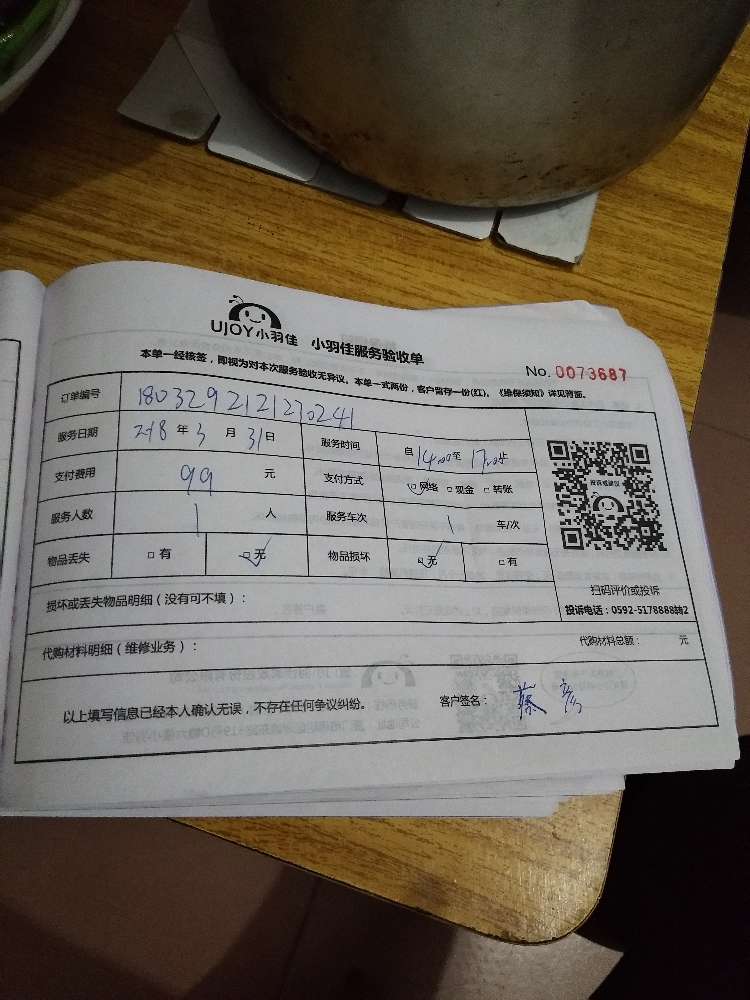 UJOY小羽佳 小羽佳服务验收单
本单一经核签，即视为对本次服务验收无异议。本单一式两份，客户留存一份(红)。《维保须知》详见背面。
No. 0073687
订单编号 180329212170241
服务日期 2018 年 3 月 31 日 服务时间 自 14:00 至 17:00 止
支付费用 99 元 支付方式 □网络 □现金 □转账
服务人数 1 人 服务车次 1 车/次
物品丢失 □有 □无 物品损坏 □无 □有
投诉或建议
扫码评价或投诉
投诉电话：0592-5178888转2
损坏或丢失物品明细（没有可不填）：
代购材料明细（维修业务）： 代购材料总额： 元
以上填写信息已经本人确认无误，不存在任何争议纠纷。 客户签名： 蔡